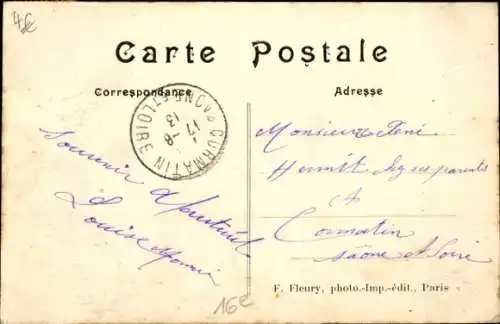 4€
Carte Postale
Correspondance
Adresse
CORMATIN
SAÔNE ET LOIRE
17-8
13
Souvenir d'
Louise
Monsieur René
ses parents
Cormatin
Saône et Loire
16€
F. Fleury, photo.-Imp.-édit., Paris